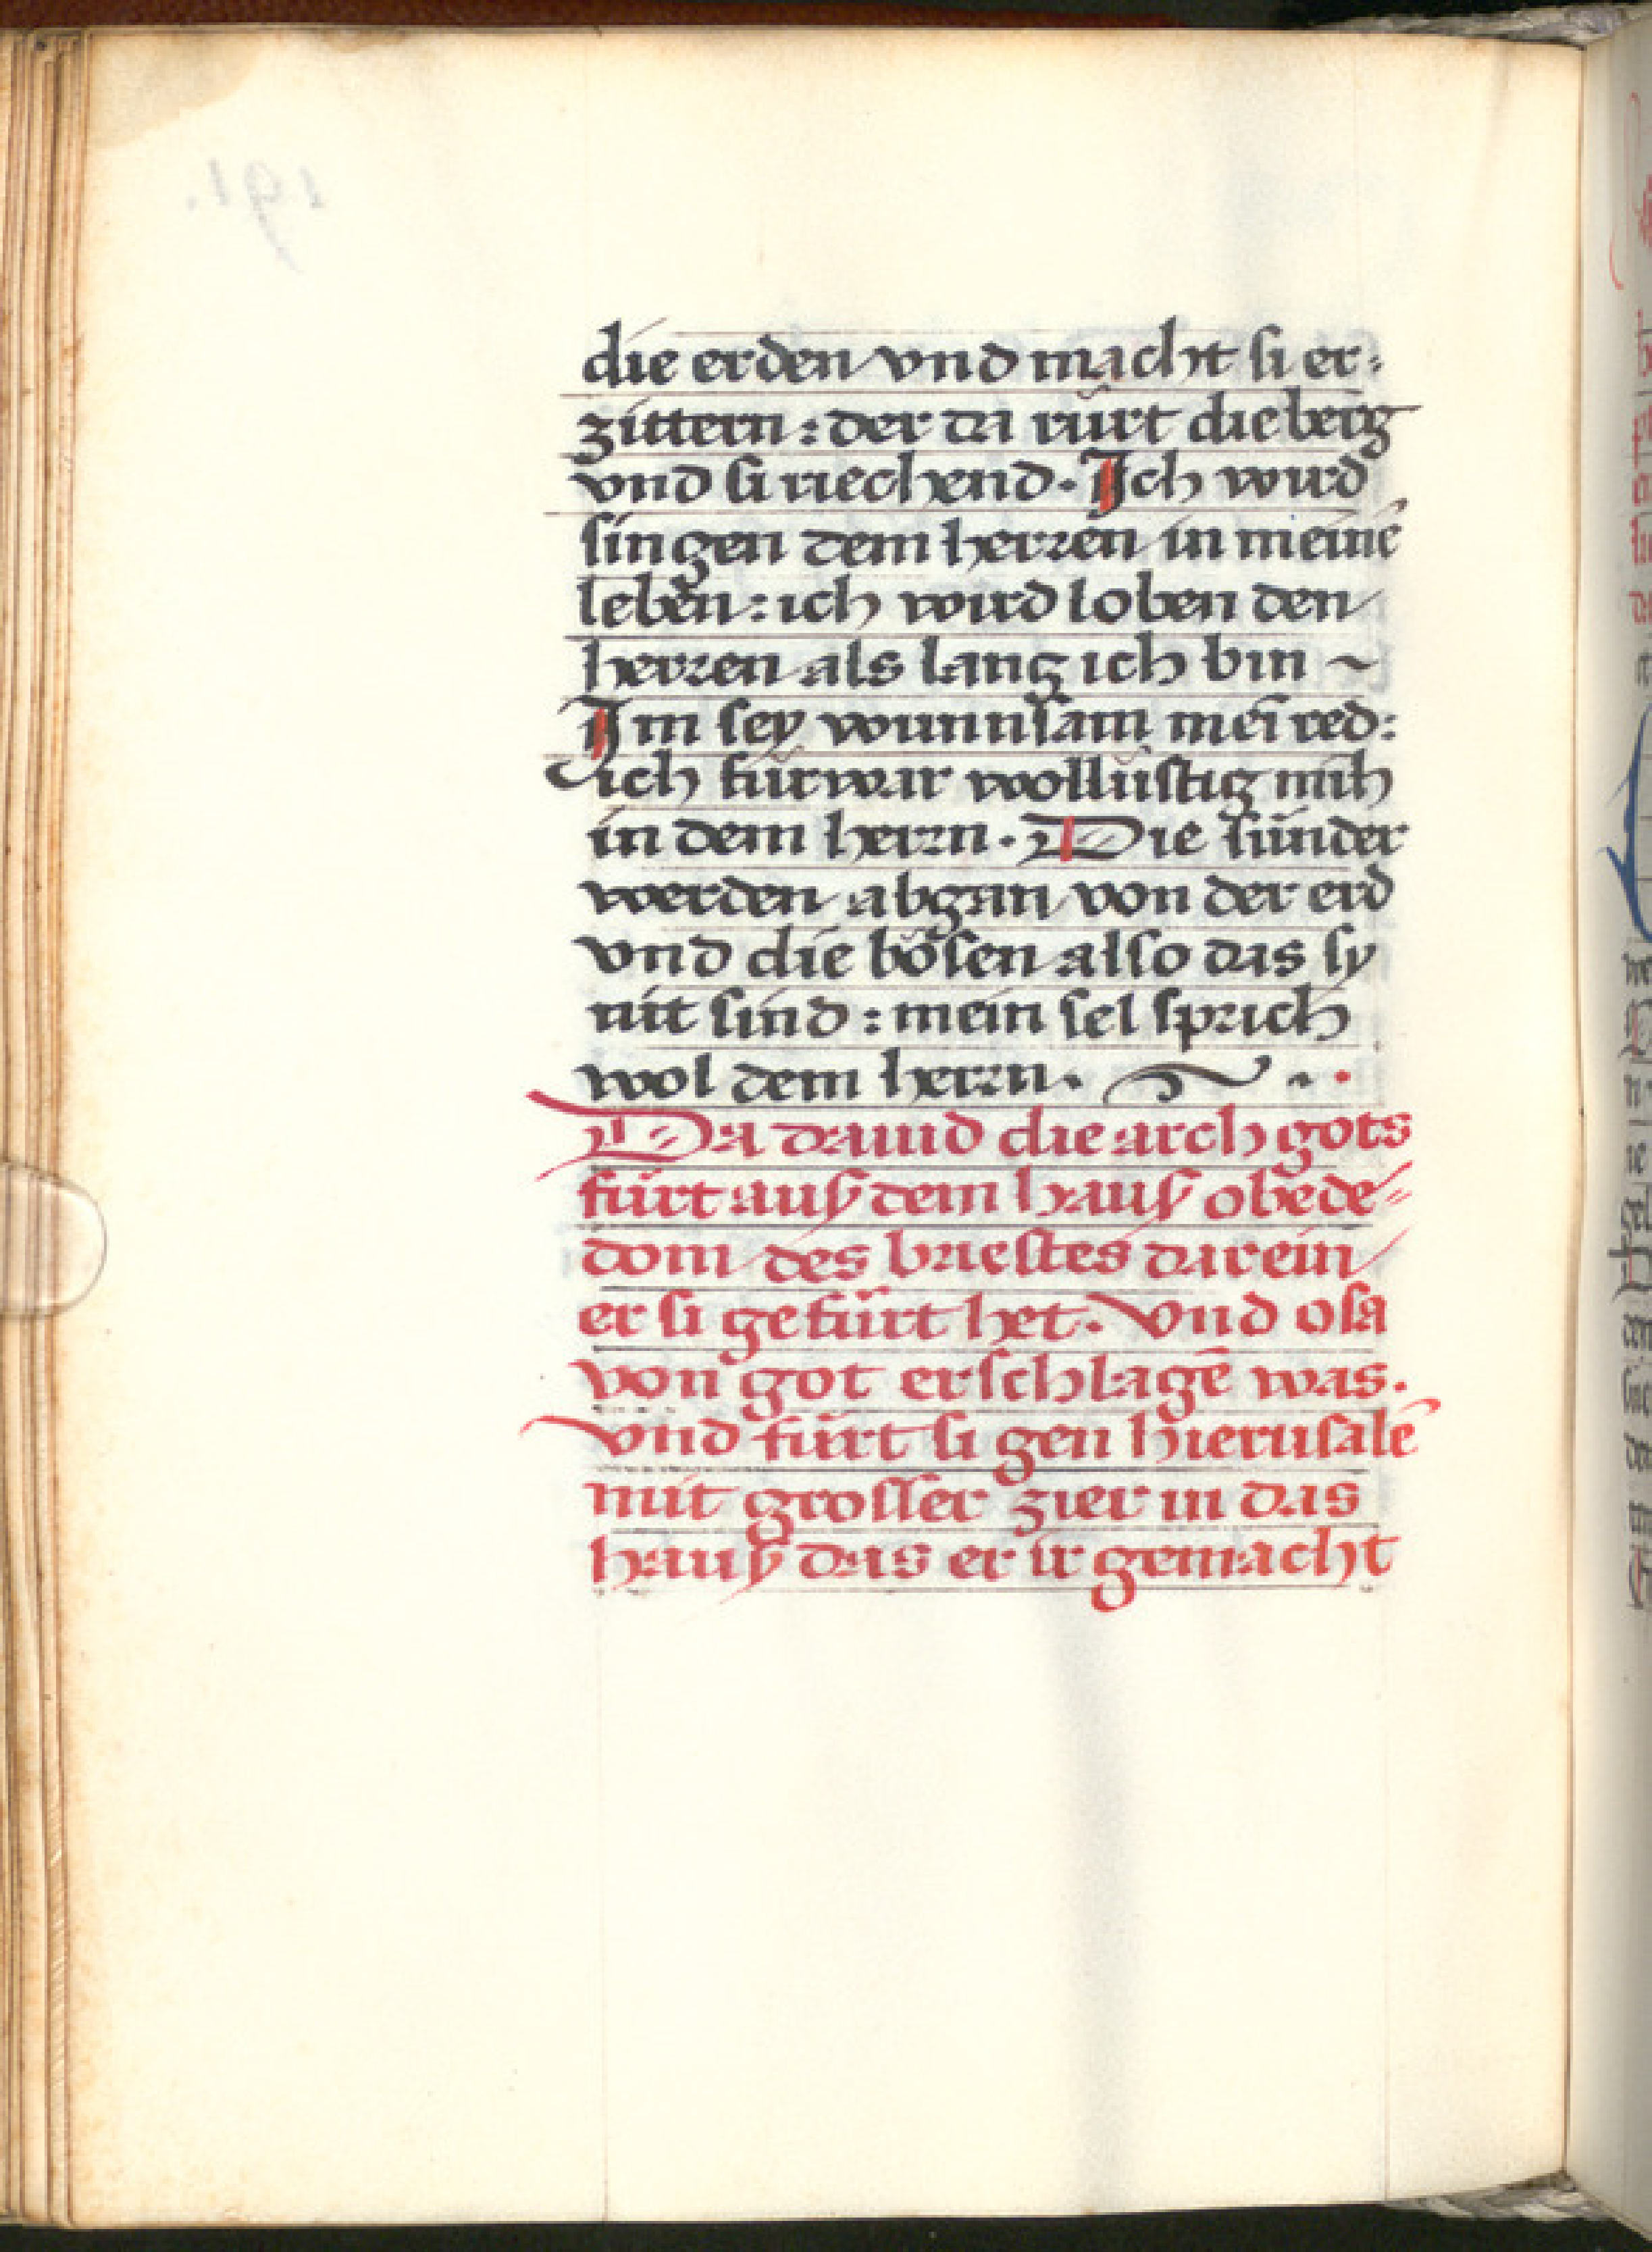 die erden vnd macht si er:
zittern : der da rürt die berg
vnd si riechend. Ich wird
singen dem herren in meinē
leben : ich wird loben den
herren als lang ich bin ~
Im sey wunnsam mei̅ red:
ich fürwar wollüstig mih
in dem herrn. Die sünder
werden abgan von der erd
vnd die bösen also das sy
nit sind : mein sel sprich
wol dem herrn.
Da dauid die arch gots
fürt auß dem hauß obede=
dom des briestes darein
er si gefürt het. Vnd osa
von got erschlagē was.
vnd fürt si gen hierusalē
mit grosser zier in das
hauß das er ir gemacht